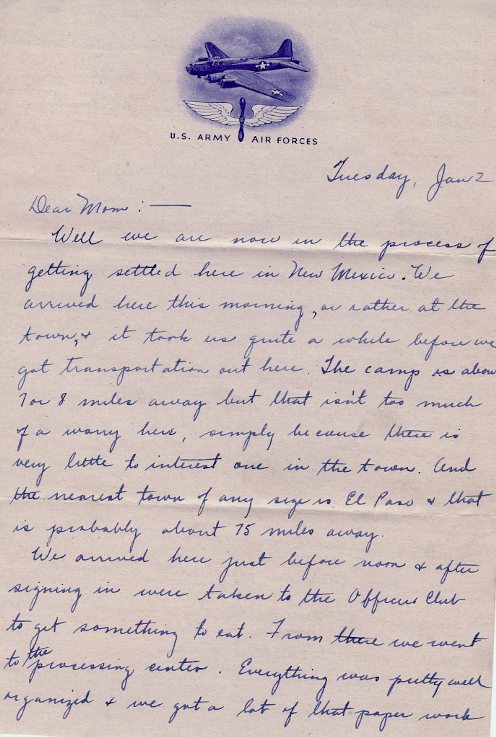 U.S. ARMY AIR FORCES
Tuesday, Jan 2
Dear Mom: —
Well we are now in the process of
getting settled here in New Mexico. We
arrived here this morning, or rather at the
town, & it took us quite a while before we
got transportation out here. The camp is abou
7 or 8 miles away but that isn't too much
of a worry here, simply because there is
very little to interest one in the town. And
the nearest town of any size is El Paso & that
is probably about 75 miles away.
We arrived here just before noon & after
signing in were taken to the Officers Club
to get something to eat. From there we went
to the processing center. Everything was pretty well
organized & we got a lot of that paper work